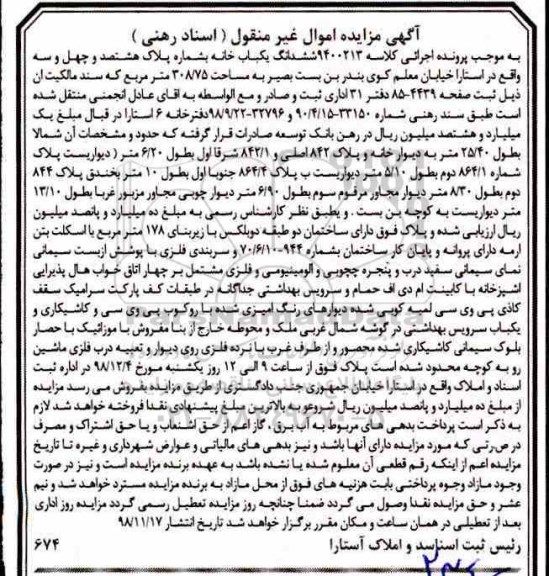 آگهی مزایده اموال غیر منقول ( اسناد رهنی )
به موجب پرونده اجرائی کلاسه ۹۴۰۰۲۱۳ششدانگ یکباب خانه بشماره پلاک هشتصد و چهل و سه
واقع در استارا خیابان معلم کوی بندر بن بست بصیر به مساحت ۳۰۸/۷۵ متر مربع که سند مالکیت ان
ذیل ثبت صفحه ۴۴۳۹-۸۵ دفتر ۳۱ اداری ثبت و صادر و مع الواسطه به اقای عادل انجمنی منتقل شده
است طبق سند رهنی شماره ۳۳۱۵۰-۹۰/۴/۱۵ و ۳۲۷۹۶-۹۸/۹/۲۲دفترخانه ۶ استارا در قبال مبلغ یک
میلیارد و هشتصد میلیون ریال در رهن بانک توسعه صادرات قرار گرفته که حدود و مشخصات آن شمالا
بطول ۲۵/۴۰ متر به دیوار خانه و پلاک ۸۴۲ اصلی و ۸۴۲/۱ شرقا اول بطول ۶/۲۰ متر ( دیواریست پلاک
شماره ۸۶۴/۱ دوم بطول ۵/۱۰ متر دیواریست ب پلاک ۸۶۴/۴ جنوبا اول بطول ۱۰ متر بخندق پلاک ۸۴۴
دوم بطول ۸/۳۰ متر دیوار مجاور مرقوم سوم بطول ۶/۹۰ متر دیوار چوبی مجاور مزبور غربا بطول ۱۳/۱۰
متر دیواریست به کوچه بن بست . و بطبق نظر کارشناس رسمی به مبلغ ده میلیارد و پانصد میلیون
ریال ارزیابی شده و پلاک فوق دارای ساختمان دو طبقه دوبلکس با زیربنای ۱۷۸ متر مربع با اسکلت بتن
ارمه دارای پروانه و پایان کار ساختمان بشماره ۹۴۴-۷۰/۶/۱۰ و سربندی فلزی با پوشش ازبست سیمانی
نمای سیمانی سفید درب و پنجره چچوبی و الومینیومی و فلزی مشتمل بر چهار اتاق خواب هال پذیرایی
اشپزخانه با کابینت ام دی اف حمام و سرویس بهداشتی جداگانه در طبقات کف پارکت سرامیک سقف
کاذی پی وی سی لمبه کوبی شده دیوارهای رنگ امیزی شده با روکوب پی وی سی و کاشیکاری و
یکباب سرویس بهداشتی در گوشه شمال غربی ملک و محوطه خارج از بنا مفروش با موزائیک با حصار
بلوک سیمانی کاشیکاری شده محصور و از طرف غرب با نرده فلزی روی دیوار و تعبیه درب فلزی ماشین
رو به کوچه محدود شده است پلاک فوق از ساعت ۹ الی ۱۲ روز یکشنبه مورخ ۹۸/۱۲/۴ در اداره ثبت
اسناد و املاک واقع در استارا خیابان جمهوری جنب دادگستری از طریق مزایده بفروش می رسد مزایده
از مبلغ ده میلیارد و پانصد میلیون ریال شروع و به بالاترین مبلغ پیشنهادی نقدا فروخته خواهد شد لازم
به ذکر است پرداخت بدهی های مربوط به آب برق ، گاز اعم از حق انشعاب و یا حق اشتراک و مصرف
در صرتی که مورد مزایده دارای آنها باشد و نیز بدهی های مالیاتی و عوارض شهرداری و غیره تا تاریخ
مزایده اعم از اینکه رقم قطعی آن معلوم شده یا نشده باشد به عهده برنده مزایده است و نیز در صورت
وجود مازاد وجوه پرداختی بابت هزینه های فوق از محل مازاد به برنده مزایده مسترد خواهد شد و نیم
عشر و حق مزایده نقدا وصول می گردد ضمنا چنانچه روز مزایده تعطیل رسمی گردد مزایده روز اداری
بعد از تعطیلی در همان ساعت و مکان مقرر برگزار خواهد شد تاریخ انتشار ۹۸/۱۱/۱۷
رئیس ثبت اسناسد و املاک آستارا ۶۷۴